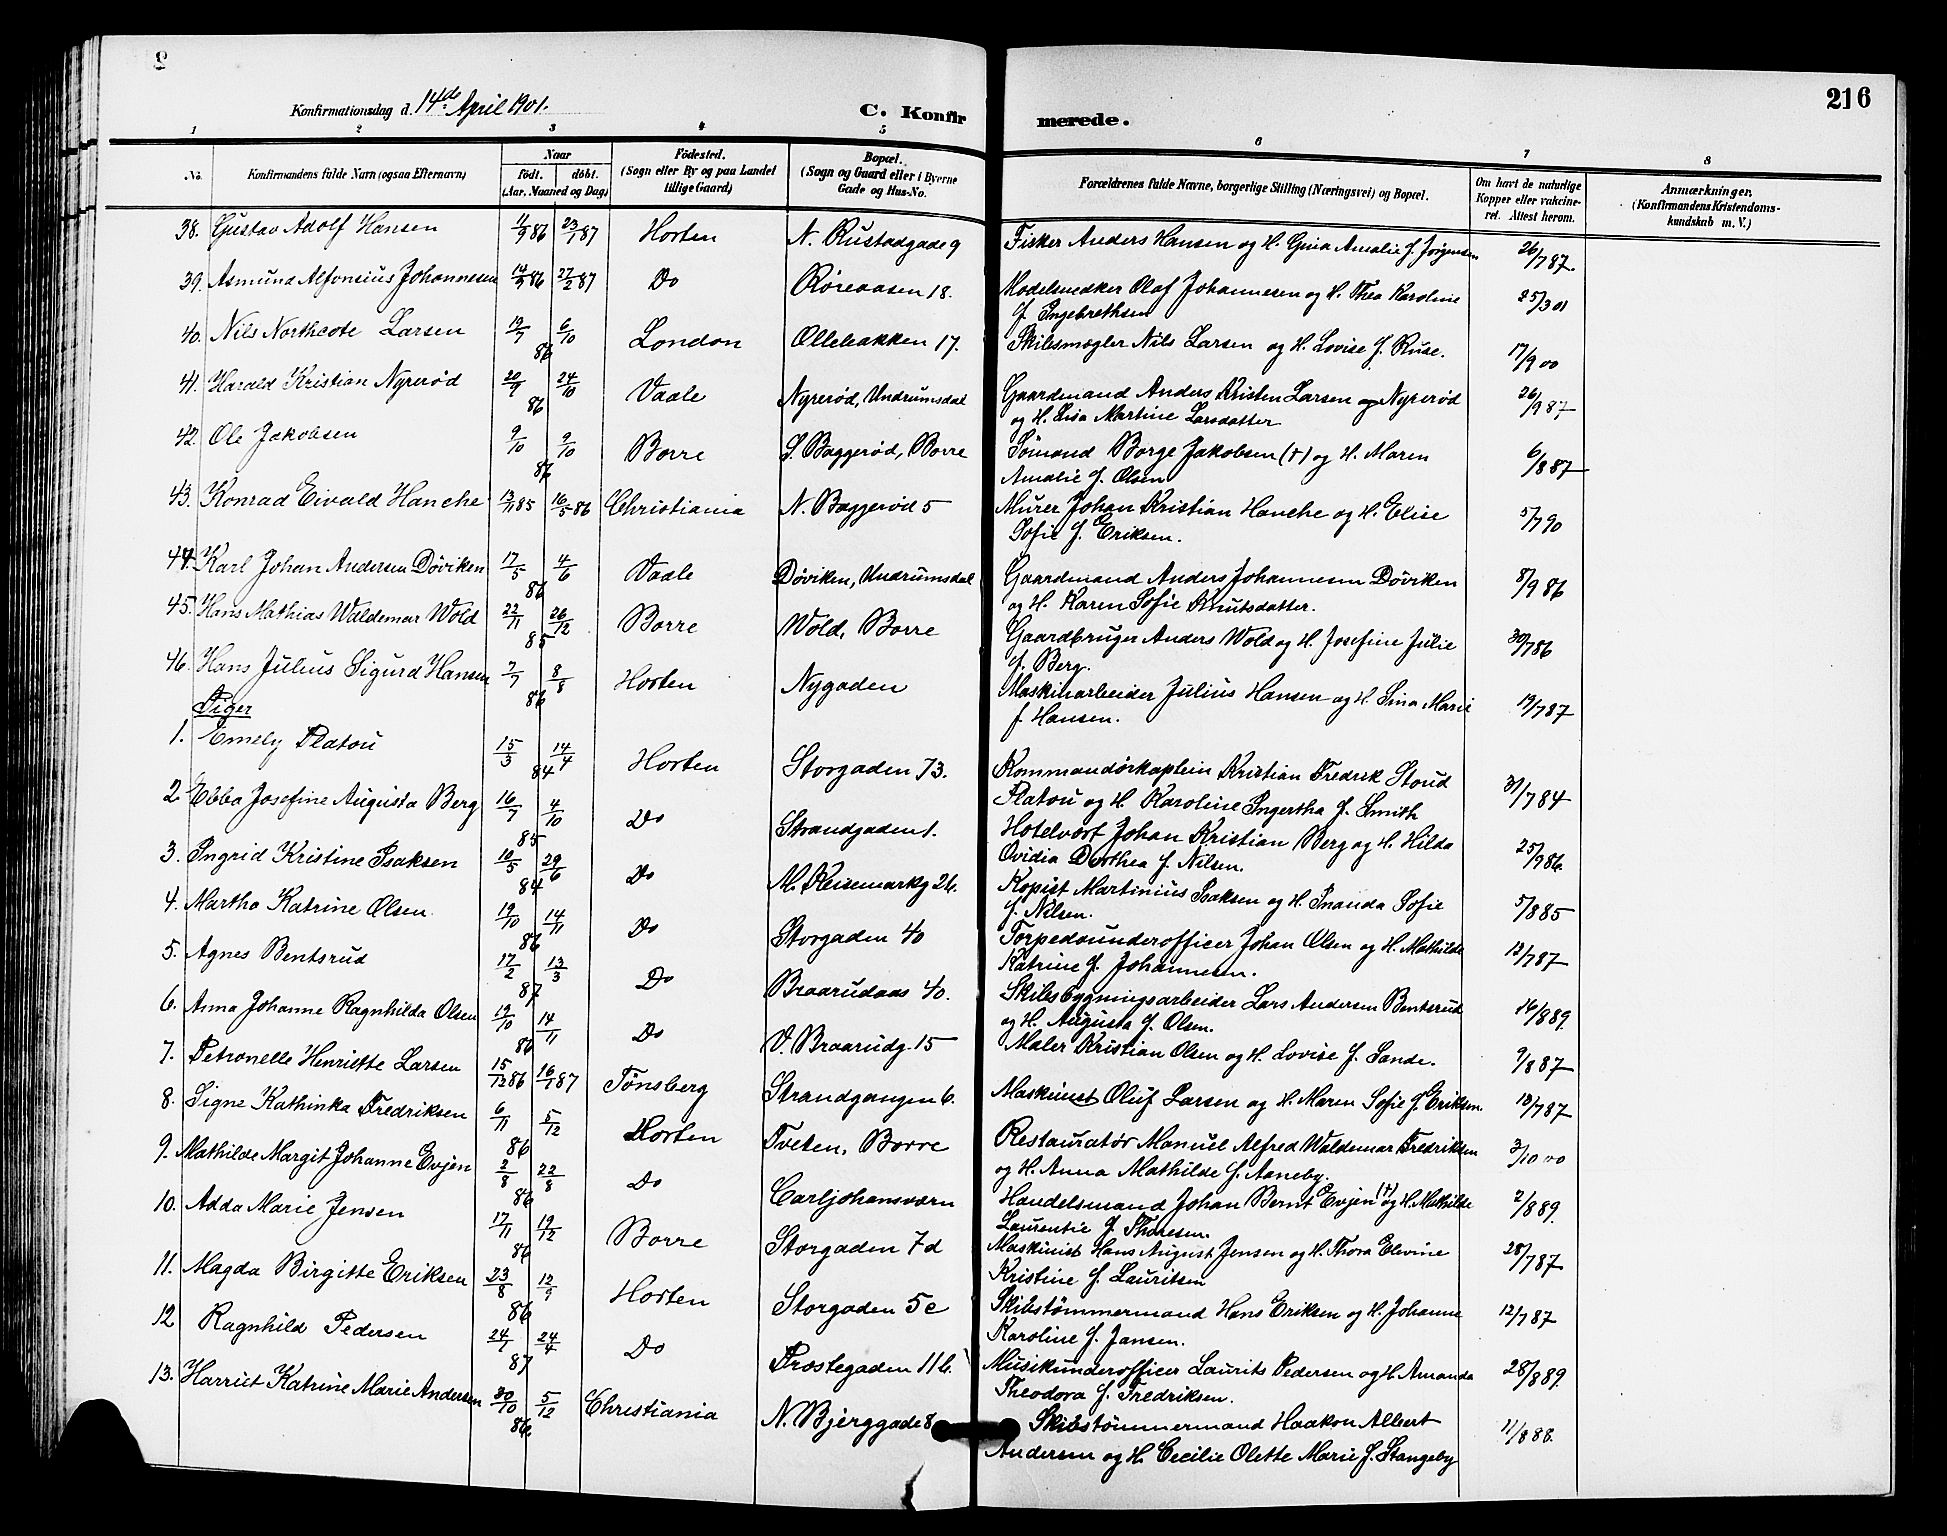 216
Konfirmationsdag d. 14de April 1901.
C. Konfirmerede.
1 2 3 4 5 6 7 8
No. Konfirmandens fulde Navn (ogsaa Efternavn) Naar født. døbt. (Aar, Maaned og Dag) Fødested. (Sogn eller By og paa Landet tillige Gaard) Bopæl. (Sogn og Gaard eller i Byerne Gade og Hus-No. Forældrenes fulde Navne, borgerlige Stilling (Næringsvei) og Bopæl. Om havt de naturlige Kopper eller vakcineret. Attest herom. Anmærkninger. (Konfirmandens Kristendomskundskab m. V.)
38. Gustav Adolf Hansen 1/9 86 23/1 87 Horten N. Rustadgade 9 Fisker Anders Hansen og H. Gina Amalie f. Jørgensen 26/7 87.
39. Asmund Alfonsius Johannesen 14/9 86 27/2 87 Do Røreaasen 18. Modelsnedker Olaf Johannesen og H. Thea Karoline
f. Ingebrethsen 25/3 01
40. Nils Northcote Larsen 19/7 6/10 86 London Ollebakken 17. Skibsmægler Nils Larsen og H. Lovise f. Ruse. 17/9 00
41. Harald Kristian Nyrerød 20/9 24/10 86 Vaale Nyrerød, Undrumsdal Gaardmand Anders Kristen Larsen og Nyrerød
og H. Lisa Martine Larsdatter 26/9 87
42. Ole Jakobsen 9/10 9/10 86 Borre S. Baggerød, Borre Sømand Borge Jakobsen (+) og H. Maren
Amalie f. Olsen 6/8 87
43. Konrad Eivald Hanche 13/11 85 16/5 86 Christiania N. Baggerød 5 Murer Johan Kristian Hanche og H. Elise
Sofie f. Eriksen. 5/7 90
44. Karl Johan Andersen Døviken 17/5 4/6 86 Vaale Døviken, Undrumsdal Gaardmand Anders Johannesen Døviken
og H. Karen Sofie Knutsdatter. 8/9 86
45. Hans Mathias Waldemar Wold 22/11 26/12 85 Borre Wold, Borre Gaardbruger Anders Wold og H. Josefine Julie
f. Berg. 30/7 86
46. Hans Julius Sigurd Hansen 7/7 8/8 86 Horten Nygaden Maskinarbeider Julius Hansen og H. Lina Marie
f. Hansen. 19/7 87
Piger
1. Emely Platou 15/3 14/4 84 Horten Storgaden 73. Kommandørkaptein Kristian Fredrik Stoud
Platou og H. Karoline Ingertha f. Smith 31/7 84
2. Ebba Josefine Augusta Berg 16/7 4/10 85 Do Strandgaden 1. Hotelvært Johan Kristian Berg og H. Hilda
Ovidia Dorthea f. Nilsen. 25/9 86.
3. Ingrid Kristine Isaksen 10/5 29/6 84 Do M. Keisemarkg 26. Kopist Martinius Isaksen og H. Inanda Sofie
f. Nilsen. 5/8 85
4. Martha Katrine Olsen. 19/10 14/11 86 Do Storgaden 40 Torpedounderofficer Johan Olsen og H. Mathilde
Katrine f. Johannesen. 12/7 87
5. Agnes Bentsrud 17/2 13/3 87 Do Braarudaas 40. Skibsbygningsarbeider Lars Andersen Bentsrud
og H. Augusta f. Olsen. 16/8 89.
6. Anna Johanne Ragnhilda Olsen 19/10 14/11 86 Do V. Braarudg. 15 Maler Kristian Olsen og H. Lovise f. Sande. 9/8 87
7. Petronelle Henriette Larsen 15/12 86 16/1 87 Tønsberg Strandgangen 6. Maskinist Oluf Larsen og H. Maren Sofie f. Eriksen. 12/7 87
8. Signe Kathinka Fredriksen 6/11 5/12 86 Horten Tveten, Borre Restauratør Manuel Alfred Waldemar Fredriksen
og H. Anna Mathilde f. Aaneby. 3/10 00
9. Mathilde Margit Johanne Evjen 2/8 22/8 86 Do Carljohansværn Handelsmand Johan Bernt Evjen (+) og H. Mathilde
Laurentie f. Thoresen. 2/8 89.
10. Adda Marie Jensen 17/11 19/12 86 Borre Storgaden 7d Maskinist Hans August Jensen og H. Thora Elevine
Kristine f. Lauritsen 28/7 87.
11. Magda Birgitte Eriksen 23/8 12/9 86 Horten Storgaden 5c Skibstømmermand Hans Eriksen og H. Johanne
Karoline f. Jansen. 12/7 87
12 Ragnhild Pedersen 24/1 24/4 87 Do Prestegaden 11b. Musikunderofficer Laurits Pedersen og H. Amanda
Theodora f. Fredriksen. 28/8 89.
13. Harriet Katrine Marie Andersen 30/10 5/12 86. Christiania N. Bjerggade 8 Skibstømmermand Haakon Albert
Andersen og H. Cecilie Olette Marie f. Stangeby 11/8 88.